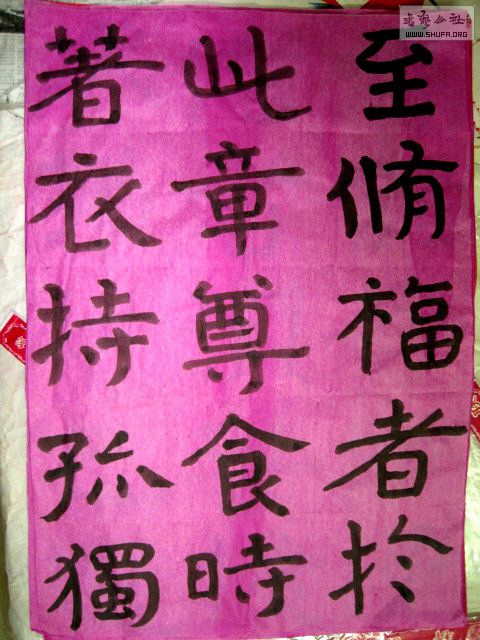 至脩福者於
此章尊食時
著衣持孤獨
书艺公社
WWW.SHUFA.ORG